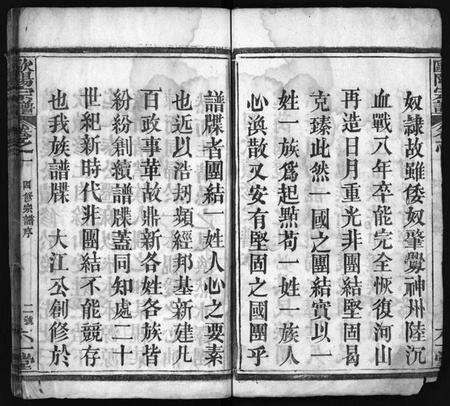 奴隸故雖倭奴肇釁神州陸沉
血戰八年卒能完全恢復河山
再造日月重光非團結堅固曷
克臻此然一國之團結實以一
姓一族為起點苟一姓一族人
心渙散又安有堅固之國團乎
譜牒者團結一姓人心之要素
也近以浩刧頻經邦基新建凡
百政事革故鼎新各姓各族皆
紛紛創續譜牒蓋同知處二十
世紀新時代非團結不能競存
也我族譜牒 大江公創修於
歐陽宗譜 卷之一
四修宗譜序
二號